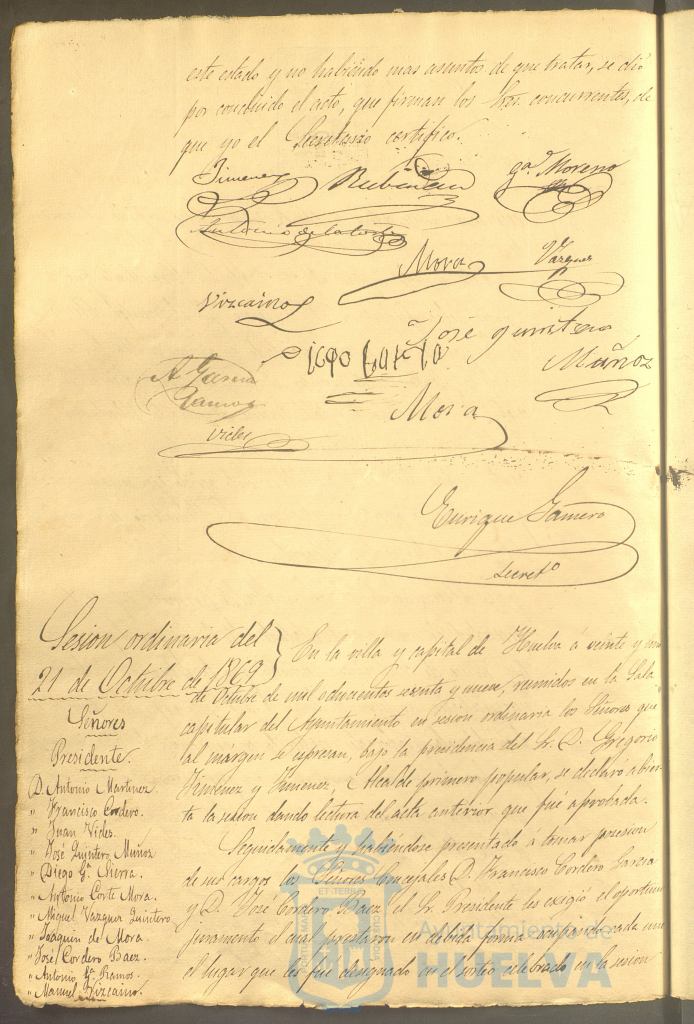 este estado y no habiendo mas asuntos de que tratar, se dió
por concluido el acto, que firman los Sres. concurrentes, de
que yo el Secretario certifico.
Jimenez
gª. Moreno
Antonio de la Corte
Mora
Vazquez
Vizcaino
José quintero
Muñoz
A. Garcia
Ramos
Mora
Vides
Enrique Gamero
Secretº
Sesion ordinaria del
21 de Octubre de 1869
Señores
Presidente.
D. Antonio Martinez
" Francisco Cordero.
" Juan Vides.
" José Quintero Muñoz
" Diego Gª.
" Antonio Corte Mora.
" Miguel Vazquez Quintero
" Joaquin de Mora.
" José Cordero Baez.
" Antonio Gª. Ramos.
" Manuel Vizcaino.
En la villa y capital de Huelva a veinte y uno
de Octubre de mil ochocientos sesenta y nueve, reunidos en la Sala
capitular del Ayuntamiento en sesion ordinaria los Señores que
al márgen se espresan, bajo la presidencia del Sr. D. Gregorio
Jimenez y Jimenez, Alcalde primero popular, se declaró abier-
ta la sesion dando lectura del acta anterior que fué aprobada.
Seguidamente y habiéndose presentado á tomar posesion
de sus cargos los Señores Concejales D. Francisco Cordero Garcia
y D. José Cordero Baez, el Sr. Presidente les exigió el oportuno
juramento el cual prestaron en debida forma ocupando cada uno
el lugar que les fué designado en el sorteo celebrado en la sesion
Ayuntamiento de
HUELVA